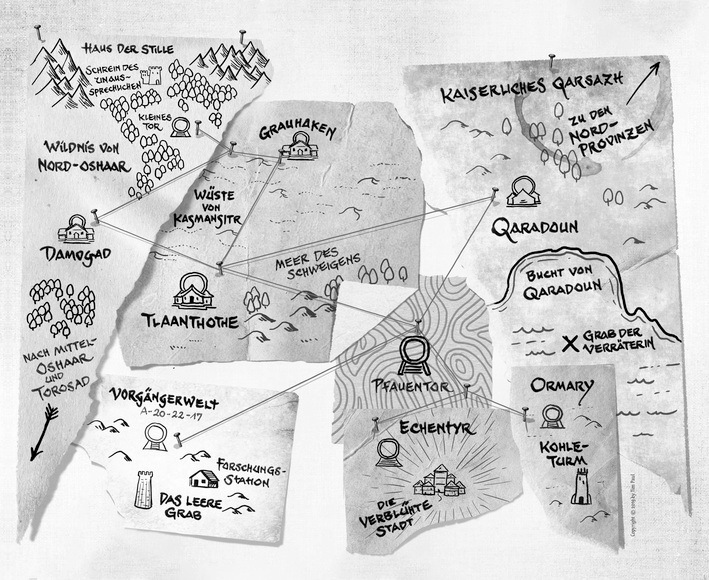 HAUS DER STILLE
SCHREIN DES
UNAUS-
SPRECHLICHEN
KLEINES
TOR
WILDNIS VON
NORD-OSHAAR
DAMOGAD
NACH MITTEL-
OSHAAR
UND
TOROSAD
GRAUHAKEN
WÜSTE
VON
KAGMANSITR
MEER DES
SCHWEIGENS
TLAANTHOTHE
KAISERLICHES QARSAZH
ZU DEN
NORD-
PROVINZEN
QARADOUN
BUCHT VON
QARADOUN
X GRAB DER
VERRÄTERIN
PFAUENTOR
VORGÄNGERWELT
A-20-22-17
FORSCHUNGS-
STATION
DAS LEERE
GRAB
ECHENTYR
DIE
VERBLÜHTE
STADT
ORMARY
KOHLE-
TURM
Copyright © 2019 by Tim Paul